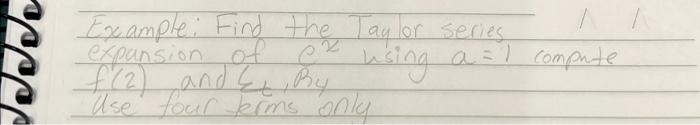 Example: Find the Taylor series
expansion of e^x using a=1 compute
f(2) and ξt, By
Use four terms only